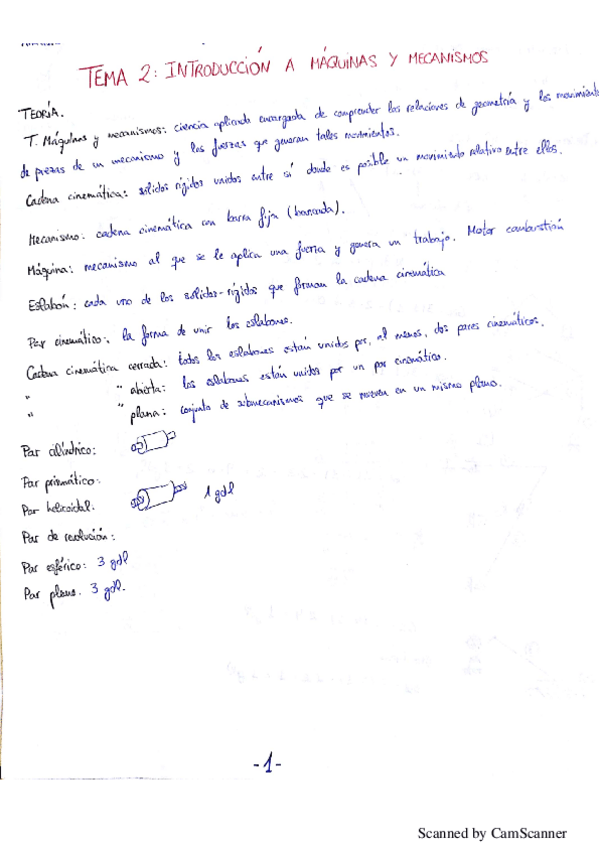 TEMA 2: INTRODUCCIÓN A MÁQUINAS Y MECANISMOS
TEORÍA.
T. Máquinas y mecanismos: ciencia aplicada encargada de comprender las relaciones de geometría y los movimiento
de piezas de un mecanismo y las fuerzas que generan tales movimientos.
Cadena cinemática: sólidos rígidos unidos entre sí donde es posible un movimiento relativo entre ellos.
Mecanismo: cadena cinemática con barra fija (bancada).
Máquina: mecanismo al que se le aplica una fuerza y genera un trabajo. Motor combustión
Eslabón: cada uno de los sólidos-rígidos que forman la cadena cinemática
Par cinemático: la forma de unir los eslabones.
Cadena cinemática cerrada: todos los eslabones están unidos por, al menos, dos pares cinemáticos.
" " abierta: los eslabones están unidos por un par cinemático.
" " plana: conjunto de submecanismos que se mueven en un mismo plano.
Par cilíndrico:
Par prismático:
Par helicoidal: 1 gdl
Par de revolución:
Par esférico: 3 gdl
Par plano. 3 gdl.
-1-
Scanned by CamScanner